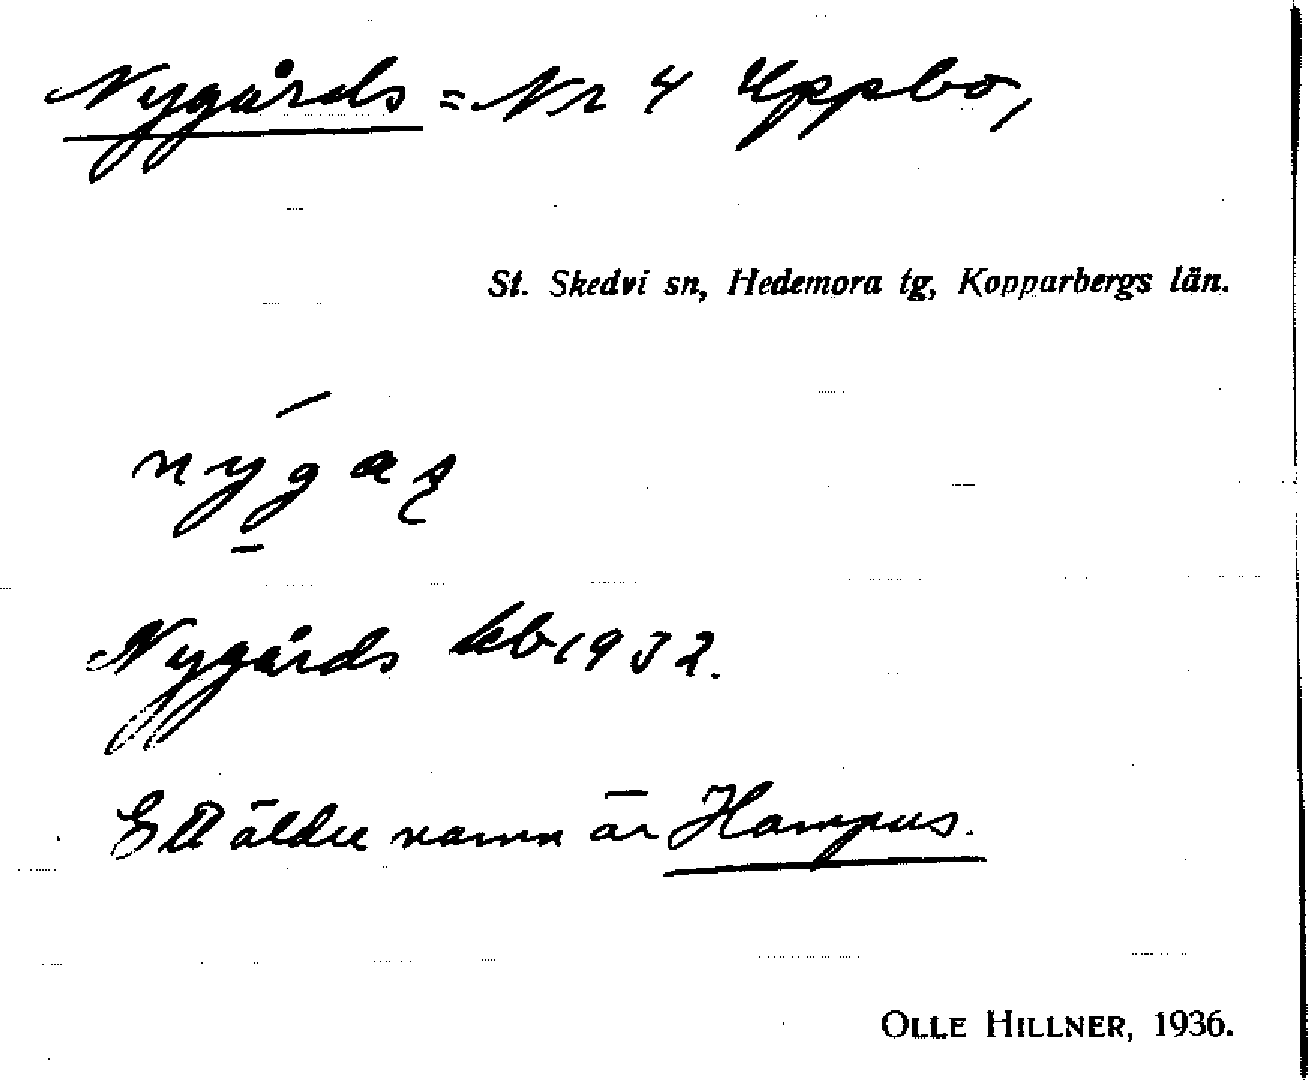 Nygårds = Nr 4 Uppbo,
St. Skedvi sn, Hedemora tg, Kopparbergs län.
Nygårds kb 1932.
Ett äldre namn är Hampus.
OLLE HILLNER, 1936.